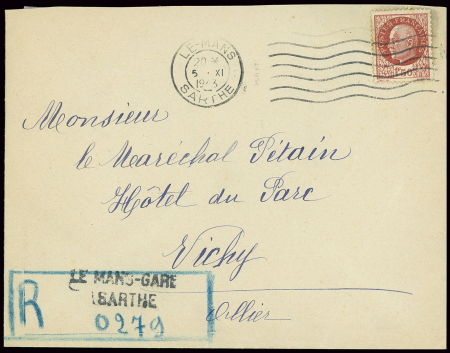 LE-MANS
20 H
5 · XI
1943
SARTHE
1F50
Monsieur
le Maréchal Pétain
Hôtel du Parc
Vichy
Allier
R
LE MANS-GARE
SARTHE
0279